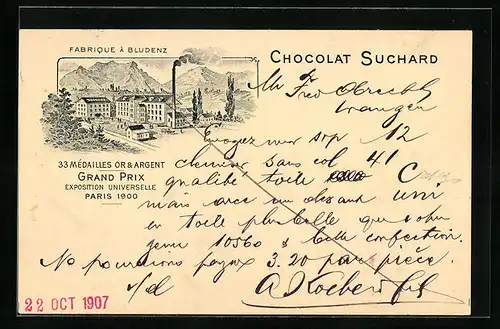 FABRIQUE À BLUDENZ
CHOCOLAT SUCHARD
33 MÉDAILLES OR & ARGENT
GRAND PRIX
EXPOSITION UNIVERSELLE
PARIS 1900
Mr Fred Obrecht
Wangen
Envoyez moi svp 12
chemises sans col 41
qualité toile
mais avec un devant uni
en toile plus belle que votre
genre 10560 & belle confection.
Nous pourrions payer 3.20 par pièce.
22 OCT 1907